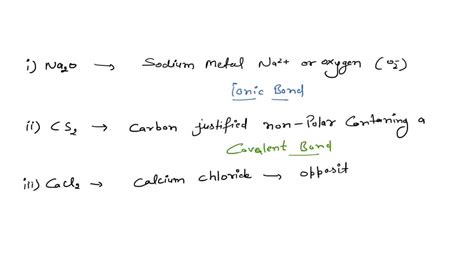 i) Na₂O → Sodium metal Na²⁺ or oxygen (O₂⁻)
Ionic Bond
ii) CS₂ → Carbon justified non-Polar Contaning a
Covalent Bond
iii) CaCl₂ → Calcium chloride → opposit